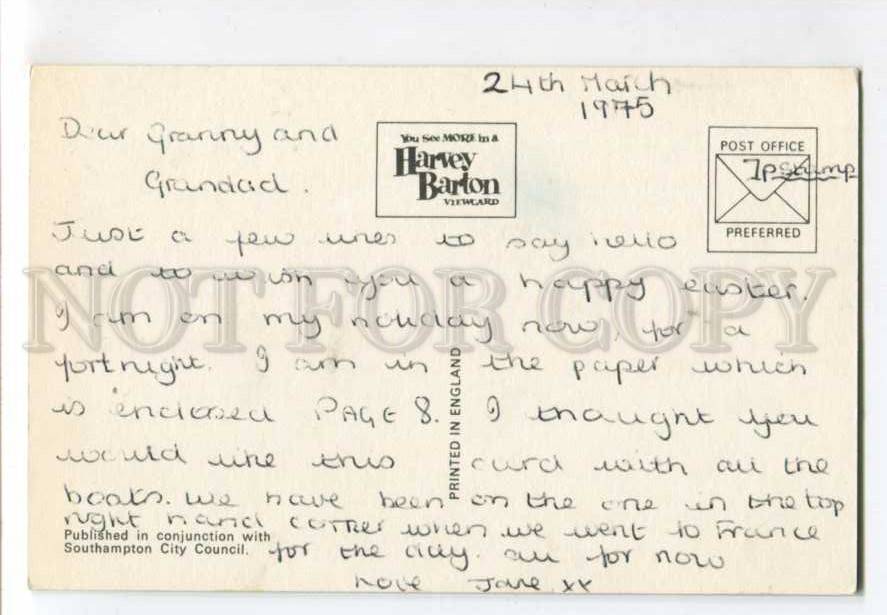 24th March
1975
Dear Granny and
Grandad.
You See MORE in a
Harvey
Barton
VIEWCARD
POST OFFICE
7p stamp
PREFERRED
Just a few lines to say hello
and to wish you a happy easter.
I am on my holiday now, for a
fortnight. I am in the paper which
is enclosed PAGE 8. I thought you
would like this card with all the
boats. we have been on the one in the top
right hand corner when we went to France
for the day. all for now
love Jane xx
PRINTED IN ENGLAND
Published in conjunction with
Southampton City Council.
NOT FOR COPY